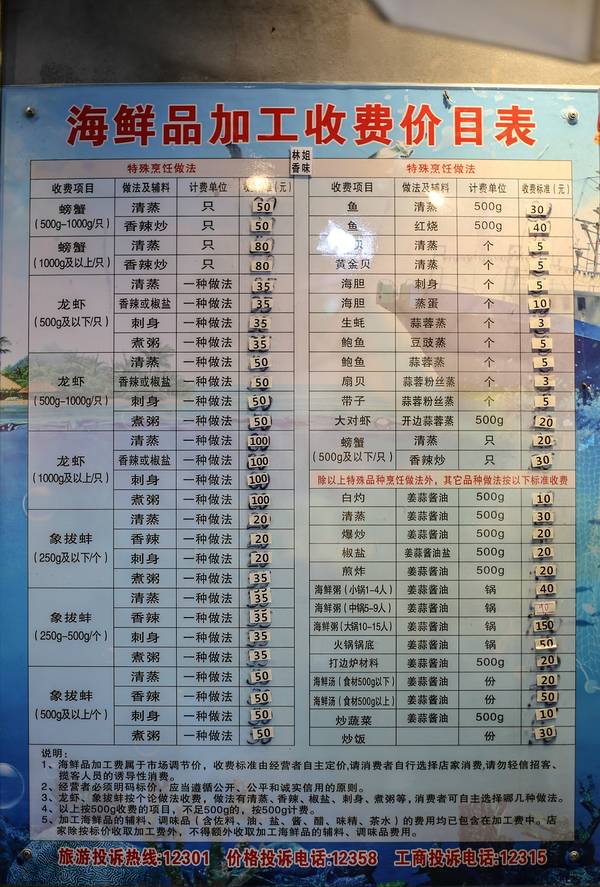 海鲜品加工收费价目表
林姐
香味
特殊烹饪做法
收费项目 做法及辅料 计费单位 收费标准(元)
螃蟹 (500g-1000g/只) 清蒸 只 50
香辣炒 只 50
螃蟹 (1000g及以上/只) 清蒸 只 80
香辣炒 只 80
龙虾 (500g及以下/只) 清蒸 一种做法 35
香辣或椒盐 一种做法 35
刺身 一种做法 35
煮粥 一种做法 35
龙虾 (500g-1000g/只) 清蒸 一种做法 50
香辣或椒盐 一种做法 50
刺身 一种做法 50
煮粥 一种做法 50
龙虾 (1000g及以上/只) 清蒸 一种做法 100
香辣或椒盐 一种做法 100
刺身 一种做法 100
煮粥 一种做法 100
象拔蚌 (250g及以下/个) 清蒸 一种做法 20
香辣 一种做法 20
刺身 一种做法 20
煮粥 一种做法 35
象拔蚌 (250g-500g/个) 清蒸 一种做法 35
香辣 一种做法 35
刺身 一种做法 35
煮粥 一种做法 35
象拔蚌 (500g及以上/个) 清蒸 一种做法 50
香辣 一种做法 50
刺身 一种做法 50
煮粥 一种做法 50
特殊烹饪做法
收费项目 做法及辅料 计费单位 收费标准(元)
鱼 清蒸 500g 30
鱼 红烧 500g 40
贝 清蒸 个 5
黄金贝 清蒸 个 5
海胆 刺身 个 5
海胆 蒸蛋 个 10
生蚝 蒜蓉蒸 个 3
鲍鱼 豆豉蒸 个 5
鲍鱼 蒜蓉蒸 个 5
扇贝 蒜蓉粉丝蒸 个 3
带子 蒜蓉粉丝蒸 个 5
大对虾 开边蒜蓉蒸 500g 20
螃蟹 (500g及以下/只) 清蒸 只 20
香辣炒 只 30
除以上特殊品种烹饪做法外，其它品种做法按以下标准收费
白灼 姜蒜酱油 500g 10
清蒸 姜蒜酱油 500g 30
爆炒 姜蒜酱油 500g 20
椒盐 姜蒜酱油盐 500g 20
煎炸 姜蒜酱油 500g 20
海鲜粥(小锅1-4人) 姜蒜酱油 锅 40
海鲜粥(中锅5-9人) 姜蒜酱油 锅
海鲜粥(大锅10-15人) 姜蒜酱油 锅 150
火锅锅底 姜蒜酱油 锅 50
打边炉材料 姜蒜酱油 500g 20
海鲜汤(食材500g以下) 姜蒜酱油 份 20
海鲜汤(食材500g以上) 姜蒜酱油 份 50
炒蔬菜 姜蒜酱油 500g 10
炒饭 份 30
说明：
1、海鲜品加工费属于市场调节价，收费标准由经营者自主定价,请消费者自行选择店家消费,请勿轻信招客、
揽客人员的诱导性消费。
2、经营者必须明码标价，应当遵循公开、公平和诚实信用的原则。
3、龙虾、象拔蚌按个论做法收费，做法有清蒸、香辣、椒盐、刺身、煮粥等,消费者可自主选择哪几种做法。
4、以上按500g收费的项目，不足500g的，按500g计费。
5、加工海鲜品的辅料、调味品（含佐料、油、盐、酱、醋、味精、茶水）的费用均已包含在加工费中。店
家除按标价收取加工费外，不得额外收取加工海鲜品的辅料、调味品费用。
旅游投诉热线:12301 价格投诉电话:12358 工商投诉电话:12315